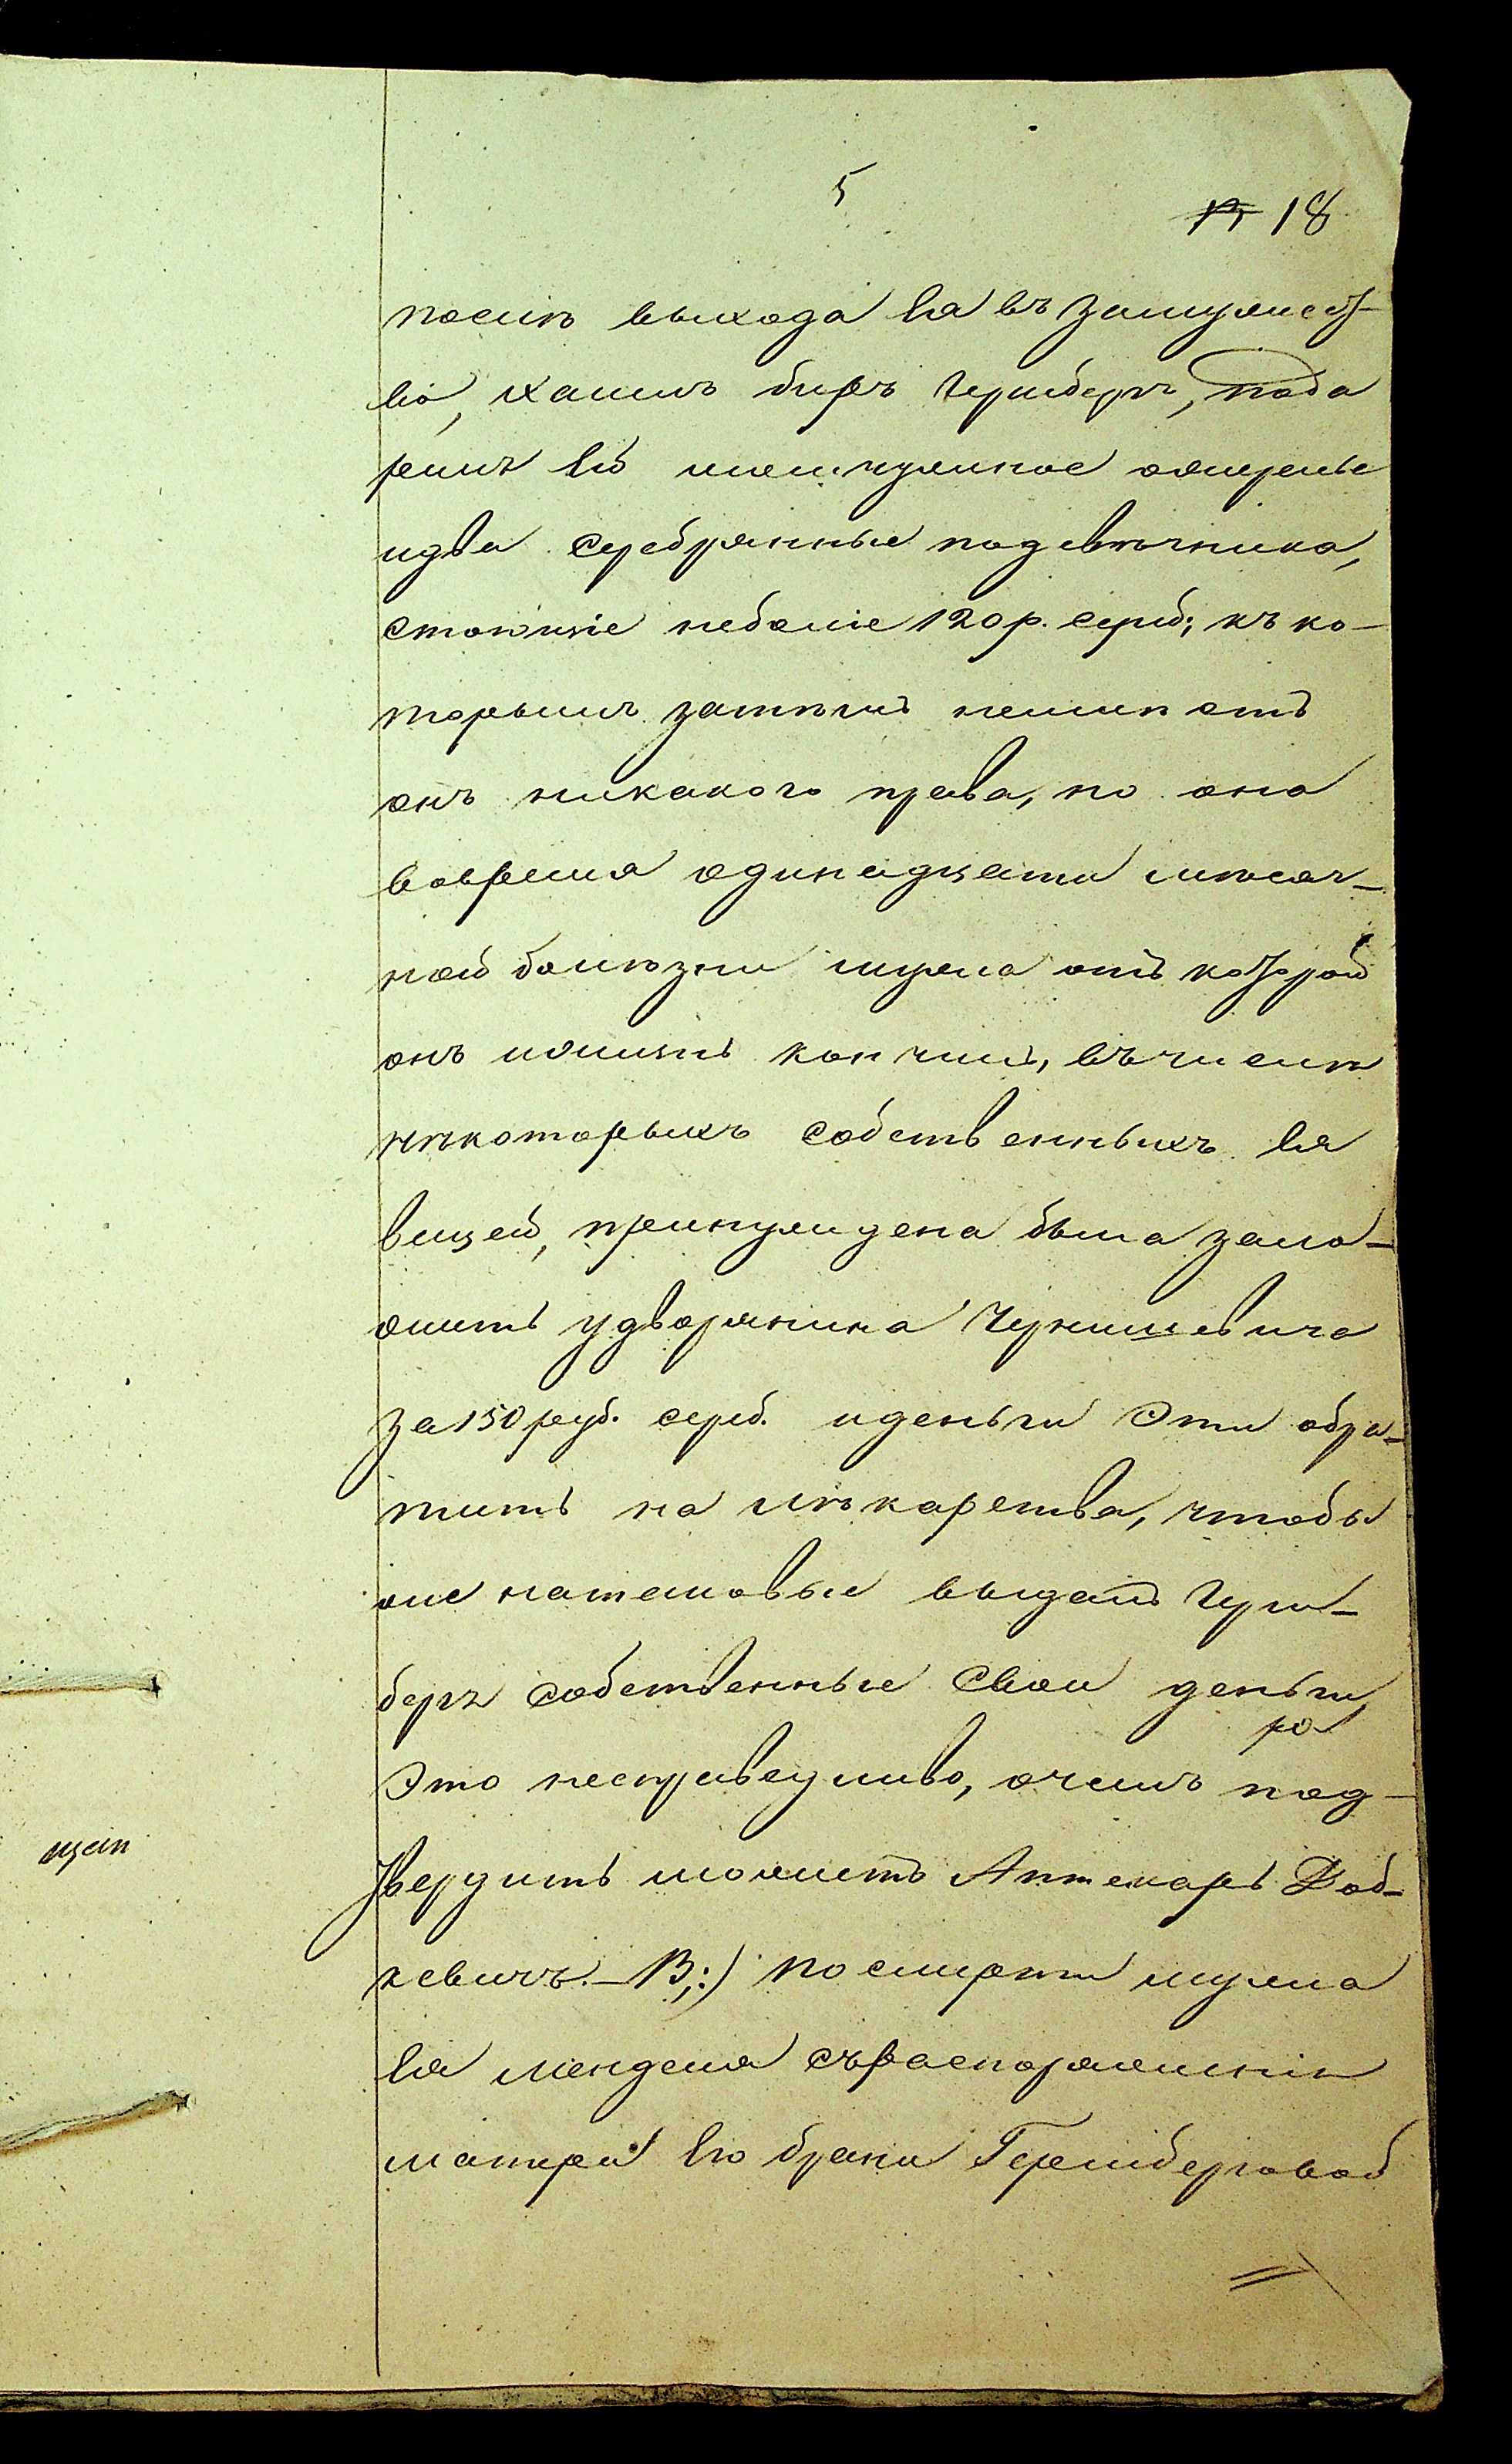 5
17 18
послѣ выхода ея въ замужест-
во, Хаимъ биръ Гершберг, пода
рилъ ей жемчужное ожерелье
идва серебрянные подсвѣчника,
стоющіе неболіе 120 р. сереб; къ ко-
торымъ затѣмъ неимѣетъ
онъ никакого права, но она
вовремя одинадцати мѣсяч-
ной болѣзни мужа отъ которой
онъ жизнь кончилъ, въчислѣ
нѣкоторыхъ собственныхъ ея
вещей, принуждена была зало-
жить удворянина Чернишевича
за 150 руб. сереб. иденьги Эти обра-
тить на лѣкарства, чтобы
же натаковые выдалъ Герш-
бергъ собственные Свои деньги,
ро
Это несправедливо, очемъ под-
твердить можетъ Аптекарь Доб-
кевичъ. В;:) по смерти мужа
ея Менделя съраспоряженія
матери его брани Гершберговой
щап